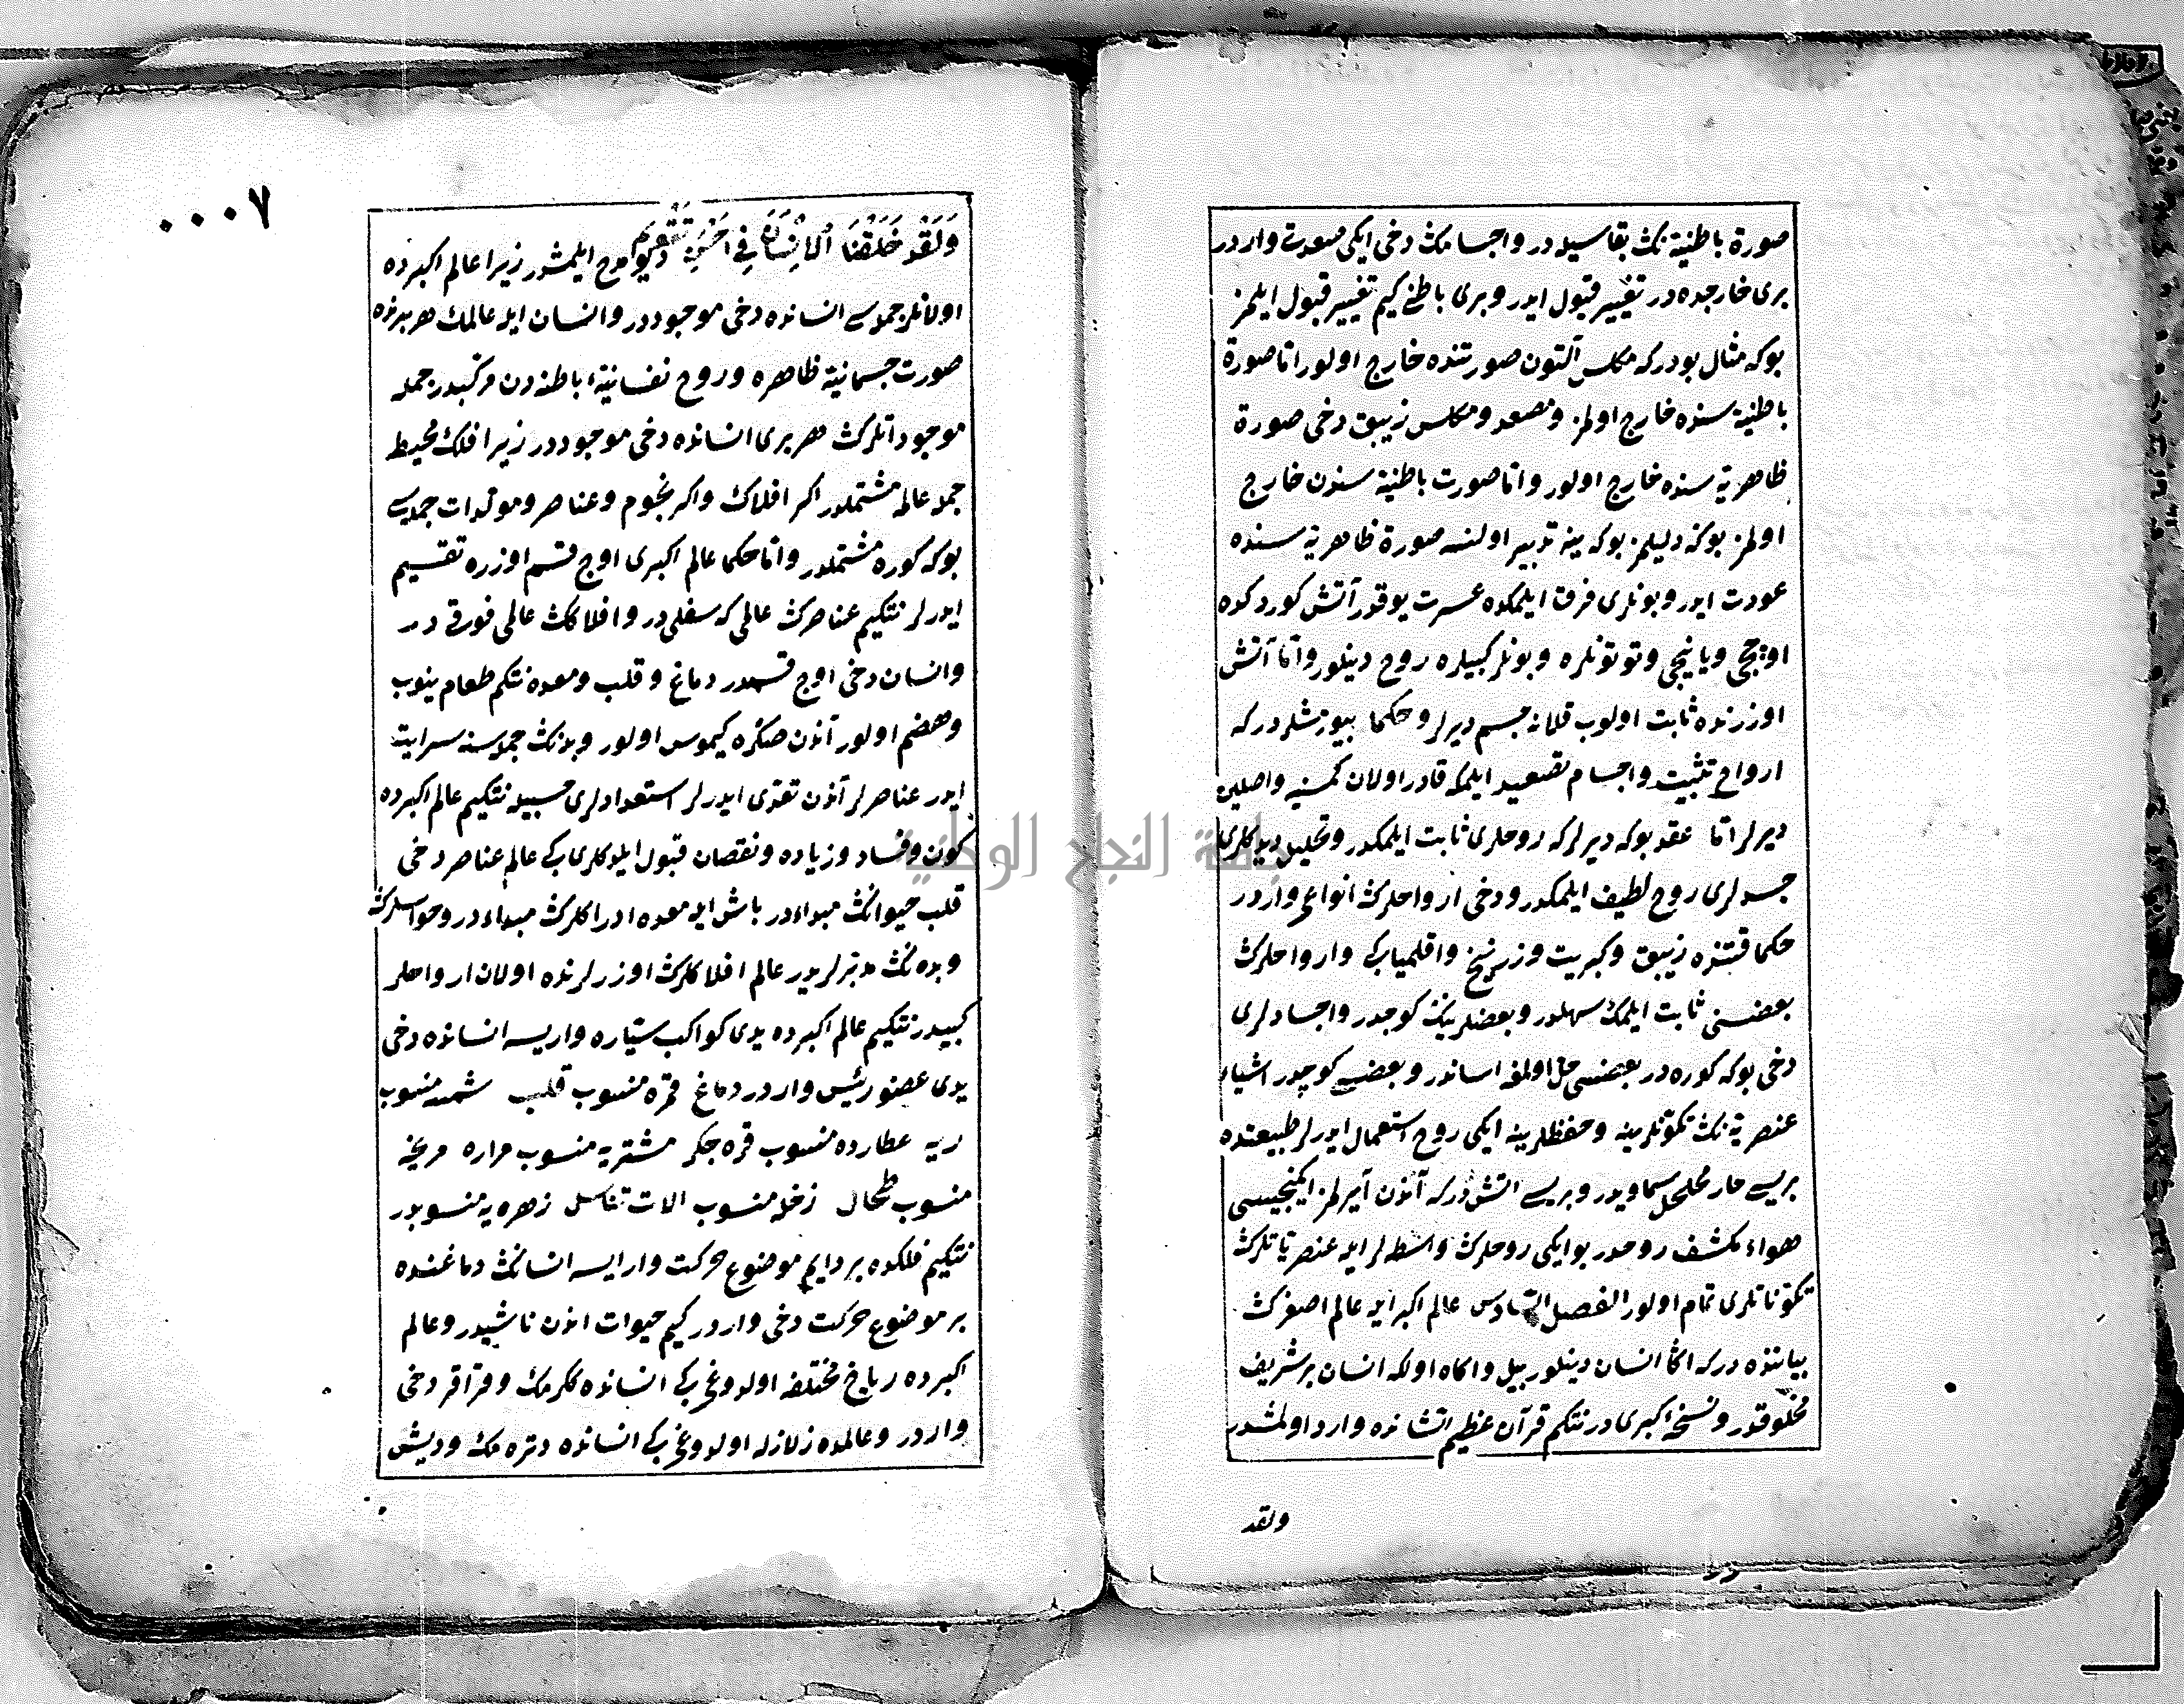 صورة باطنیة نك بقاسیله در واجسامك دخی ایكی صورت واردر
بری خارجده در تغییر قبول ایدر وبری باطنی كیم تغییر قبول ایلمز
بوكه مثال بودركه مكلس آلتون صورتنده خارج اولور اتا صورة
باطنیة سنده خارج اولمز ومصعد ومكلس زیبق دخی صورة
ظاهریة سنده خارج اولور واتا صورت باطنیة سندن خارج
اولمز بوكه دلیلمز بوكه ینه تدبیر اولنسه صورة ظاهریة سنده
عودت ایدر وبونلری فرق ایلمكده عسرت یوقدر آتش كوردكده
اوچیجی ویانیجی وتوتونلره وبونلر كبیلره روح دینلور واتا آتش
اوزرنده ثابت اولوب قلانه جسم دیرلر وحكما بیورمشلردركه
ارواح تثبیت واجسام تصعید ایلمكه قادر اولان كمسنیه واصلین
دیرلر اتا عقد بوكه دیرلركه روحلری ثابت ایلمكدر وتحلیل دیدكلری
جسدلری روح لطیف ایلمكدر ودخی ارواحلرك انواعی واردر
حكما قتنده زیبق وكبریت وزرنیخ واقلمیا كبی وارواحلرك
بعضسنی ثابت ایلمك سهلدر وبعضلرینك كوجدر واجسادلری
دخی بوكه كوره در بعضسی حل اولمغه اساندر وبعضسی كوچدر اشیاء
عنصریة نك تكوّنلرینه وحفظلرینه ایكی روح استعمال ایدرلر طبیعتده
بریسی حار محلحل سماویدر وبریسی اتشدركه آندن آیرلمز ایكنجیسی
هواء مكشف روحدر بوایكی روحلرك واسطه لرایله عنصریاتلرك
تكوّناتلری تمام اولور الفصل السّادس عالم اكبر ایله عالم اصغرك
بیاننده دركه اكا انسان دینلور بیل واكاه اولكه انسان بر شریف
مخلوقدر ونسخهٔ كبری در نتكم قرآن عظیم الشانده وارد اولمشدر
ولقد
٠٠٠٧
وَلَقَدْ خَلَقْنَا الْاِنْسَانَ فِی اَحْسَنِ تَقْوِیمٍ دیو مدح ایلمشدر زیرا عالم اكبرده
اولانلر جمله سی انسانده دخی موجوددر وانسان ایله عالمك هر برنده
صورت جسمانیة ظاهره وروح نفسانیة باطنه دن مركّبدر جمله
موجوداتلرك هر بری انسانده دخی موجوددر زیرا فلك محیط
جمله عالمه مشتملدر اكر افلاك واكر نجوم وعناصر ومولّدات جمله سی
بوكه كوره مشتملدر واتا حكما عالم اكبری اوج قسم اوزره تقسیم
ایدرلر نتكیم عناصرك عالمی كه سفلی در وافلاكك عالمی فوقی در
وانسان دخی اوج قسمدر دماغ وقلب ومعده نتكم طعام ینوب
وهضم اولور آندن صكره كیموس اولور وبدنك جمله سنه سرایت
ایدر عناصرلر آندن تغذی ایدرلر استعدادلری حسبیله نتكیم عالم اكبرده
كون وفساد وزیاده ونقصان قبول ایلدكلری كبی عالم عناصر دخی
قلب حیوانك مبداءدر باش ایله معده ادراكلرك مبداءدر وحواسلرك
وبدنك مدبّرلریدر عالم افلاكلرك اوزرلرنده اولان ارواحلر
كبیدر نتكیم عالم اكبرده یدی كواكب ستیاره واریسه انسانده دخی
یدی عضو رئیس واردر دماغ قمره منسوب قلب شمسه منسوب
ریه عطارده منسوب قره جكر مشتریه منسوب مراره مریخه
منسوب طحال زحله منسوب الات تناسل زهره یه منسوبدر
نتكیم فلكده بر دایم موضوع حركت وارایسه انسانك دماغنده
بر موضوع حركت دخی واردر كیم حیوات اندن ناشیدر وعالم
اكبرده ریاح مختلفه اولدوغی كبی انسانده ككرمك وقراقر دخی
واردر وعالمده زلازله اولدوغی كبی انسانده دتره مك ودیش